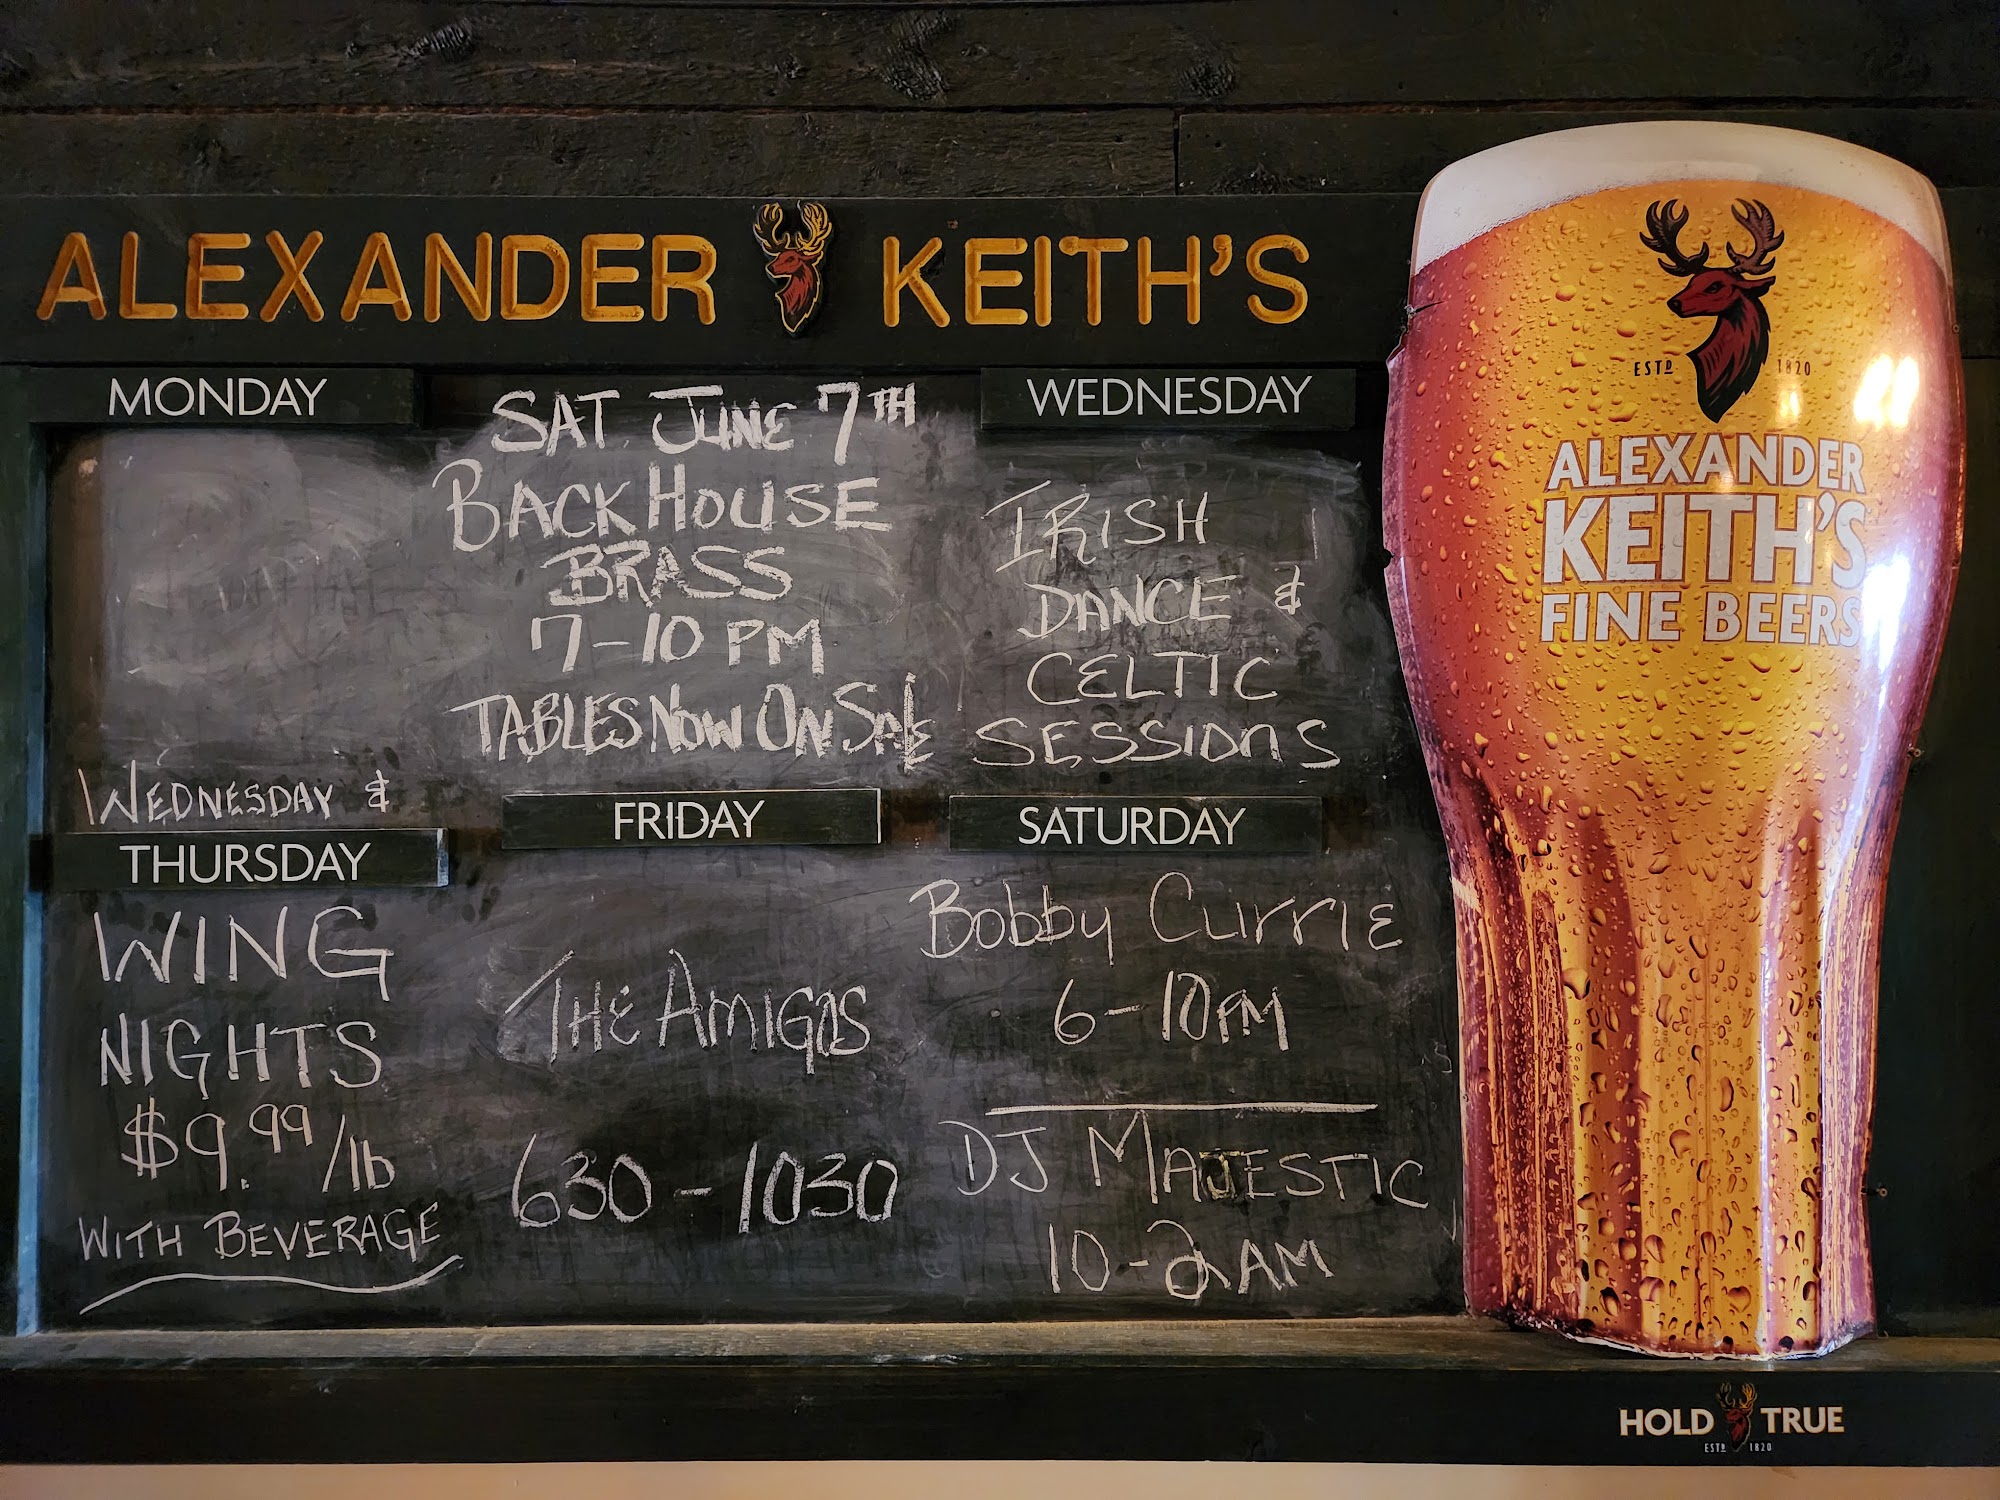 ALEXANDER KEITH'S
MONDAY
SAT. JUNE 7TH
BACKHOUSE
BRASS
7-10 PM
TABLES NOW ON SALE
WEDNESDAY
IRISH
DANCE &
CELTIC
SESSIONS
WEDNESDAY &
THURSDAY
WING
NIGHTS
$9.99/lb
WITH BEVERAGE
FRIDAY
THE AMIGOS
630-1030
SATURDAY
Bobby Currie
6-10PM
DJ MAJESTIC
10-2AM
ESTD 1820
ALEXANDER
KEITH'S
FINE BEERS
HOLD TRUE
ESTD 1820